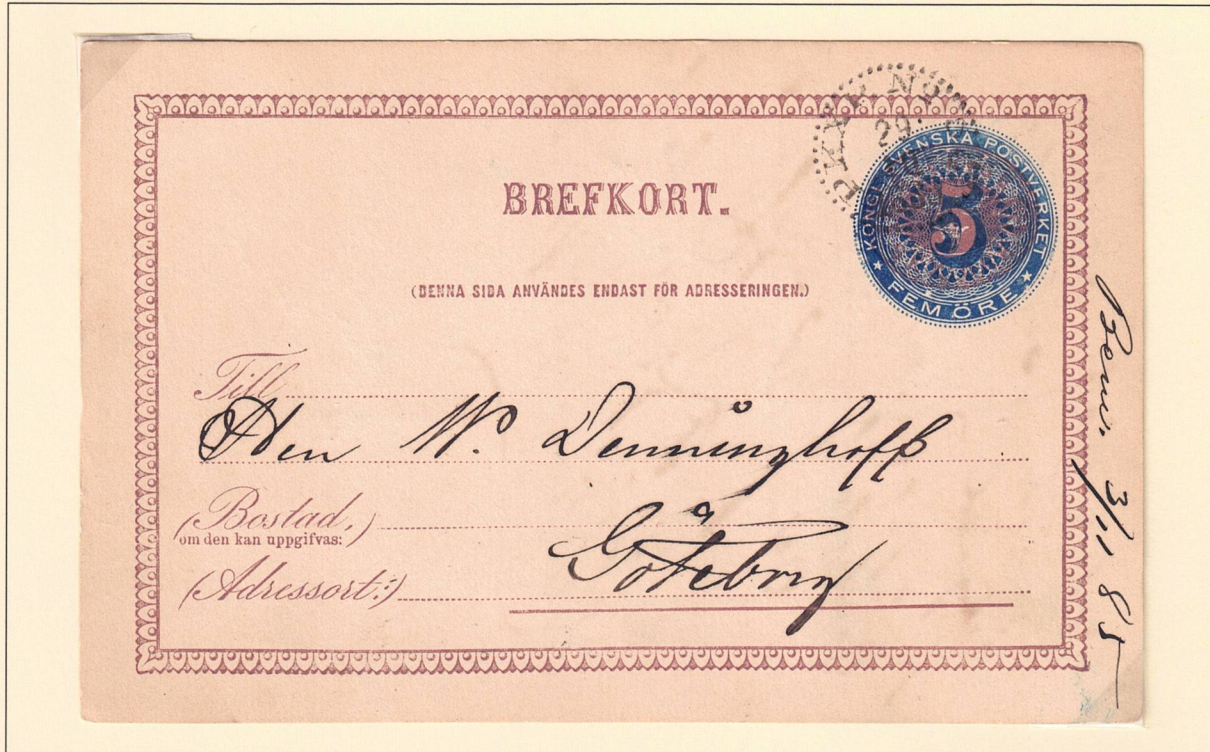 PKXP Nº
29
BREFKORT.
KONGL. SVENSKA POSTVERKET
5
FEM ÖRE
(DENNA SIDA ANVÄNDES ENDAST FÖR ADRESSERINGEN.)
Till
Herr W. Denninghoff
(Bostad,)
om den kan uppgifvas:)
Göteborg
(Adressort:)
3/11 85